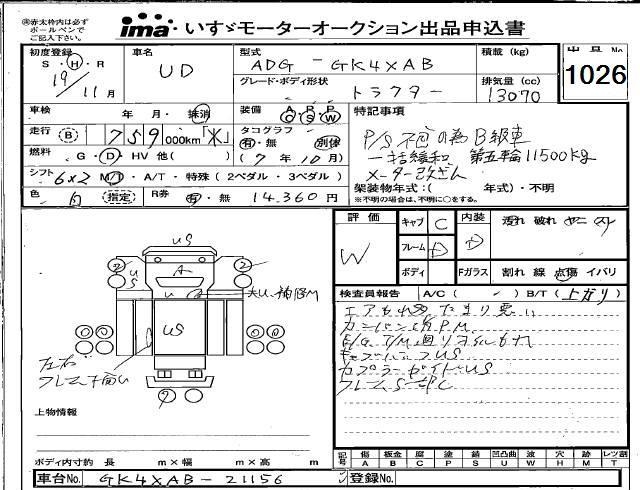 ㊟赤太枠内は必ず
ボールペンで
ご記入下さい。
ima いすゞモーターオークション出品申込書
初度登録 S・H・R 19年 11月
車名 UD
型式 ADG-GK4XAB
グレード・ボディ形状 トラクター
積載 (kg)
排気量 (cc) 13070
出品No
1026
車検 年・月・抹消
装備 A R P C S W
特記事項
走行 B 759000km「×」
タコグラフ 有・無 別体 (7年10月)
P/S不良の為B級車
一括緩和 第五輪11500kg
メーター改ざん
燃料 G・D・HV 他( )
シフト 6×2 M/T・A/T・特殊(2ペダル・3ペダル)
架装物年式:( 年式)・不明
※不明の場合は、不明に○をする。
色 白 (指定)
R券 有・無 14,360円
評価 W
キャブ C
フレーム D
ボディ
内装 D
汚れ 破れ ヤニ スレ
Fガラス 割れ 線 点傷 イバリ
検査員報告 A/C( / ) B/T(上がり)
エアもれ
カンバン P.M.
E/G T/M廻りオイルもれ
US
カプラーガイドUS
フレームS C
US
S
A
U
US
大U、補修M
左右
フレーム
上物情報
ボディ内寸約 長 m×幅 m×高 m
記号 傷A 板金B 腐C 塗P 錆S 凹凸曲U 波W 穴H 跡M レツ割T
車台No. GK4XAB-21156
登録No.